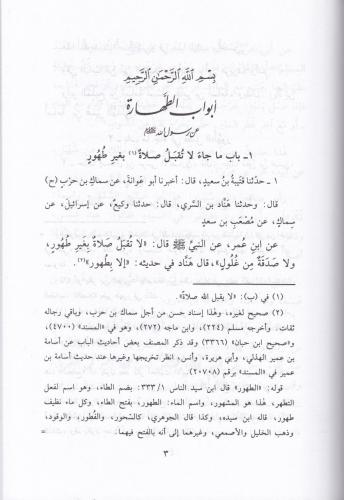 بِسْمِ اللَّهِ الرَّحْمَٰنِ الرَّحِيمِ
أبواب الطَّهارة
عن رسول الله ﷺ
١ـ باب ما جاءَ لا تُقبَلُ صلاةٌ(١) بغيرِ طُهُورٍ
١ ـ حدَّثنا قُتَيبةُ بنُ سعيدٍ، قال: أخبرنا أبو عَوَانةَ، عن سِماكِ بنِ حَرْبٍ (ح)
قال: وحدثنا هَنَّاد بن السَّري، قال: حدثنا وكيعٌ، عن إسرائيلَ، عن
سِماك، عن مُصْعَبِ بن سعدٍ
عن ابنِ عُمر، عن النبيِّ ﷺ قال: «لا تُقبَلُ صَلاةٌ بِغَيرِ طُهُورٍ،
ولا صَدَقةٌ مِن غُلُولٍ»، قال هَنَّاد في حديثه: «إلا بِطُهور»(٢).
(١) في (ب): «لا يقبل الله صلاة».
(٢) صحيح لغيره، وهٰذا إسناد حسن من أجل سماك بن حرب، وباقي رجاله
ثقات. وأخرجه مسلم (٢٢٤)، وابن ماجه (٢٧٢)، وهو في «المسند» (٤٧٠٠)،
و«صحيح ابن حبان» (٣٣٦٦) وقد ذكر المصنف بعض أحاديث الباب عن أسامة
بن عمير الهذلي، وأبي هريرة، وأنس، انظر تخريجها وغيرها عند حديث أسامة بن
عمير في «المسند» برقم (٢٠٧٠٨).
قوله: «الطهور» قال ابن سيد الناس ٣٣٣/١: بضم الطاء، وهو اسم لفعل
التطهر، هٰذا هو المشهور، واسم الماء: الطهور، بفتح الطاء، وكل ماء نظيف
طهور، قاله ابن سيده، وكذا قال الجوهري، كالسَّحور، والفَطور، والوَقود،
وذهب الخليل والأصمعي، وغيرهما إلى أنه بالفتح فيهما. =
٣